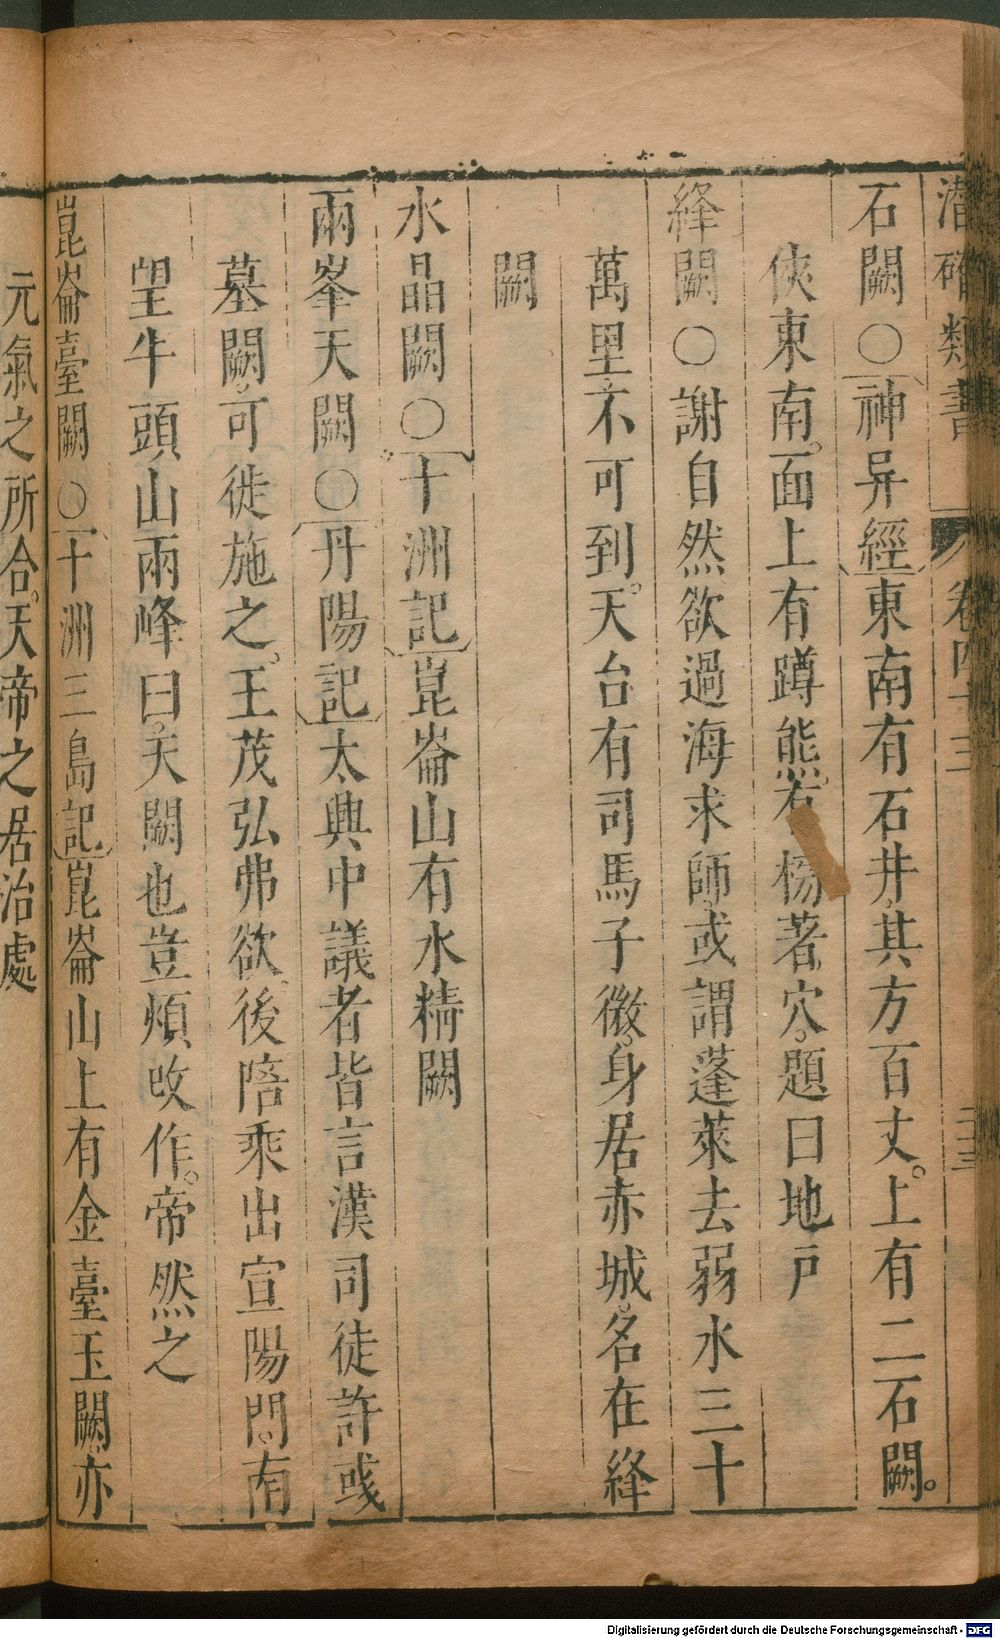 潛確類書 卷四十三 二三
石闕○神异經東南有石井其方百丈上有二石闕
俠東南面上有蹲熊有榜著穴題曰地戸
絳闕○謝自然欲過海求師或謂蓬萊去弱水三十
萬里不可到天台有司馬子微身居赤城名在絳
闕
水晶闕○十洲記崑崙山有水精闕
兩峯天闕○丹陽記太興中議者皆言漢司徒許彧
墓闕可徙施之王茂弘弗欲後陪乘出宣陽門南
望牛頭山兩峰曰天闕也豈煩改作帝然之
崑崙臺闕○十洲三島記崑崙山上有金臺玉闕亦
元氣之所合天帝之居治處
Digitalisierung gefördert durch die Deutsche Forschungsgemeinschaft - DFG